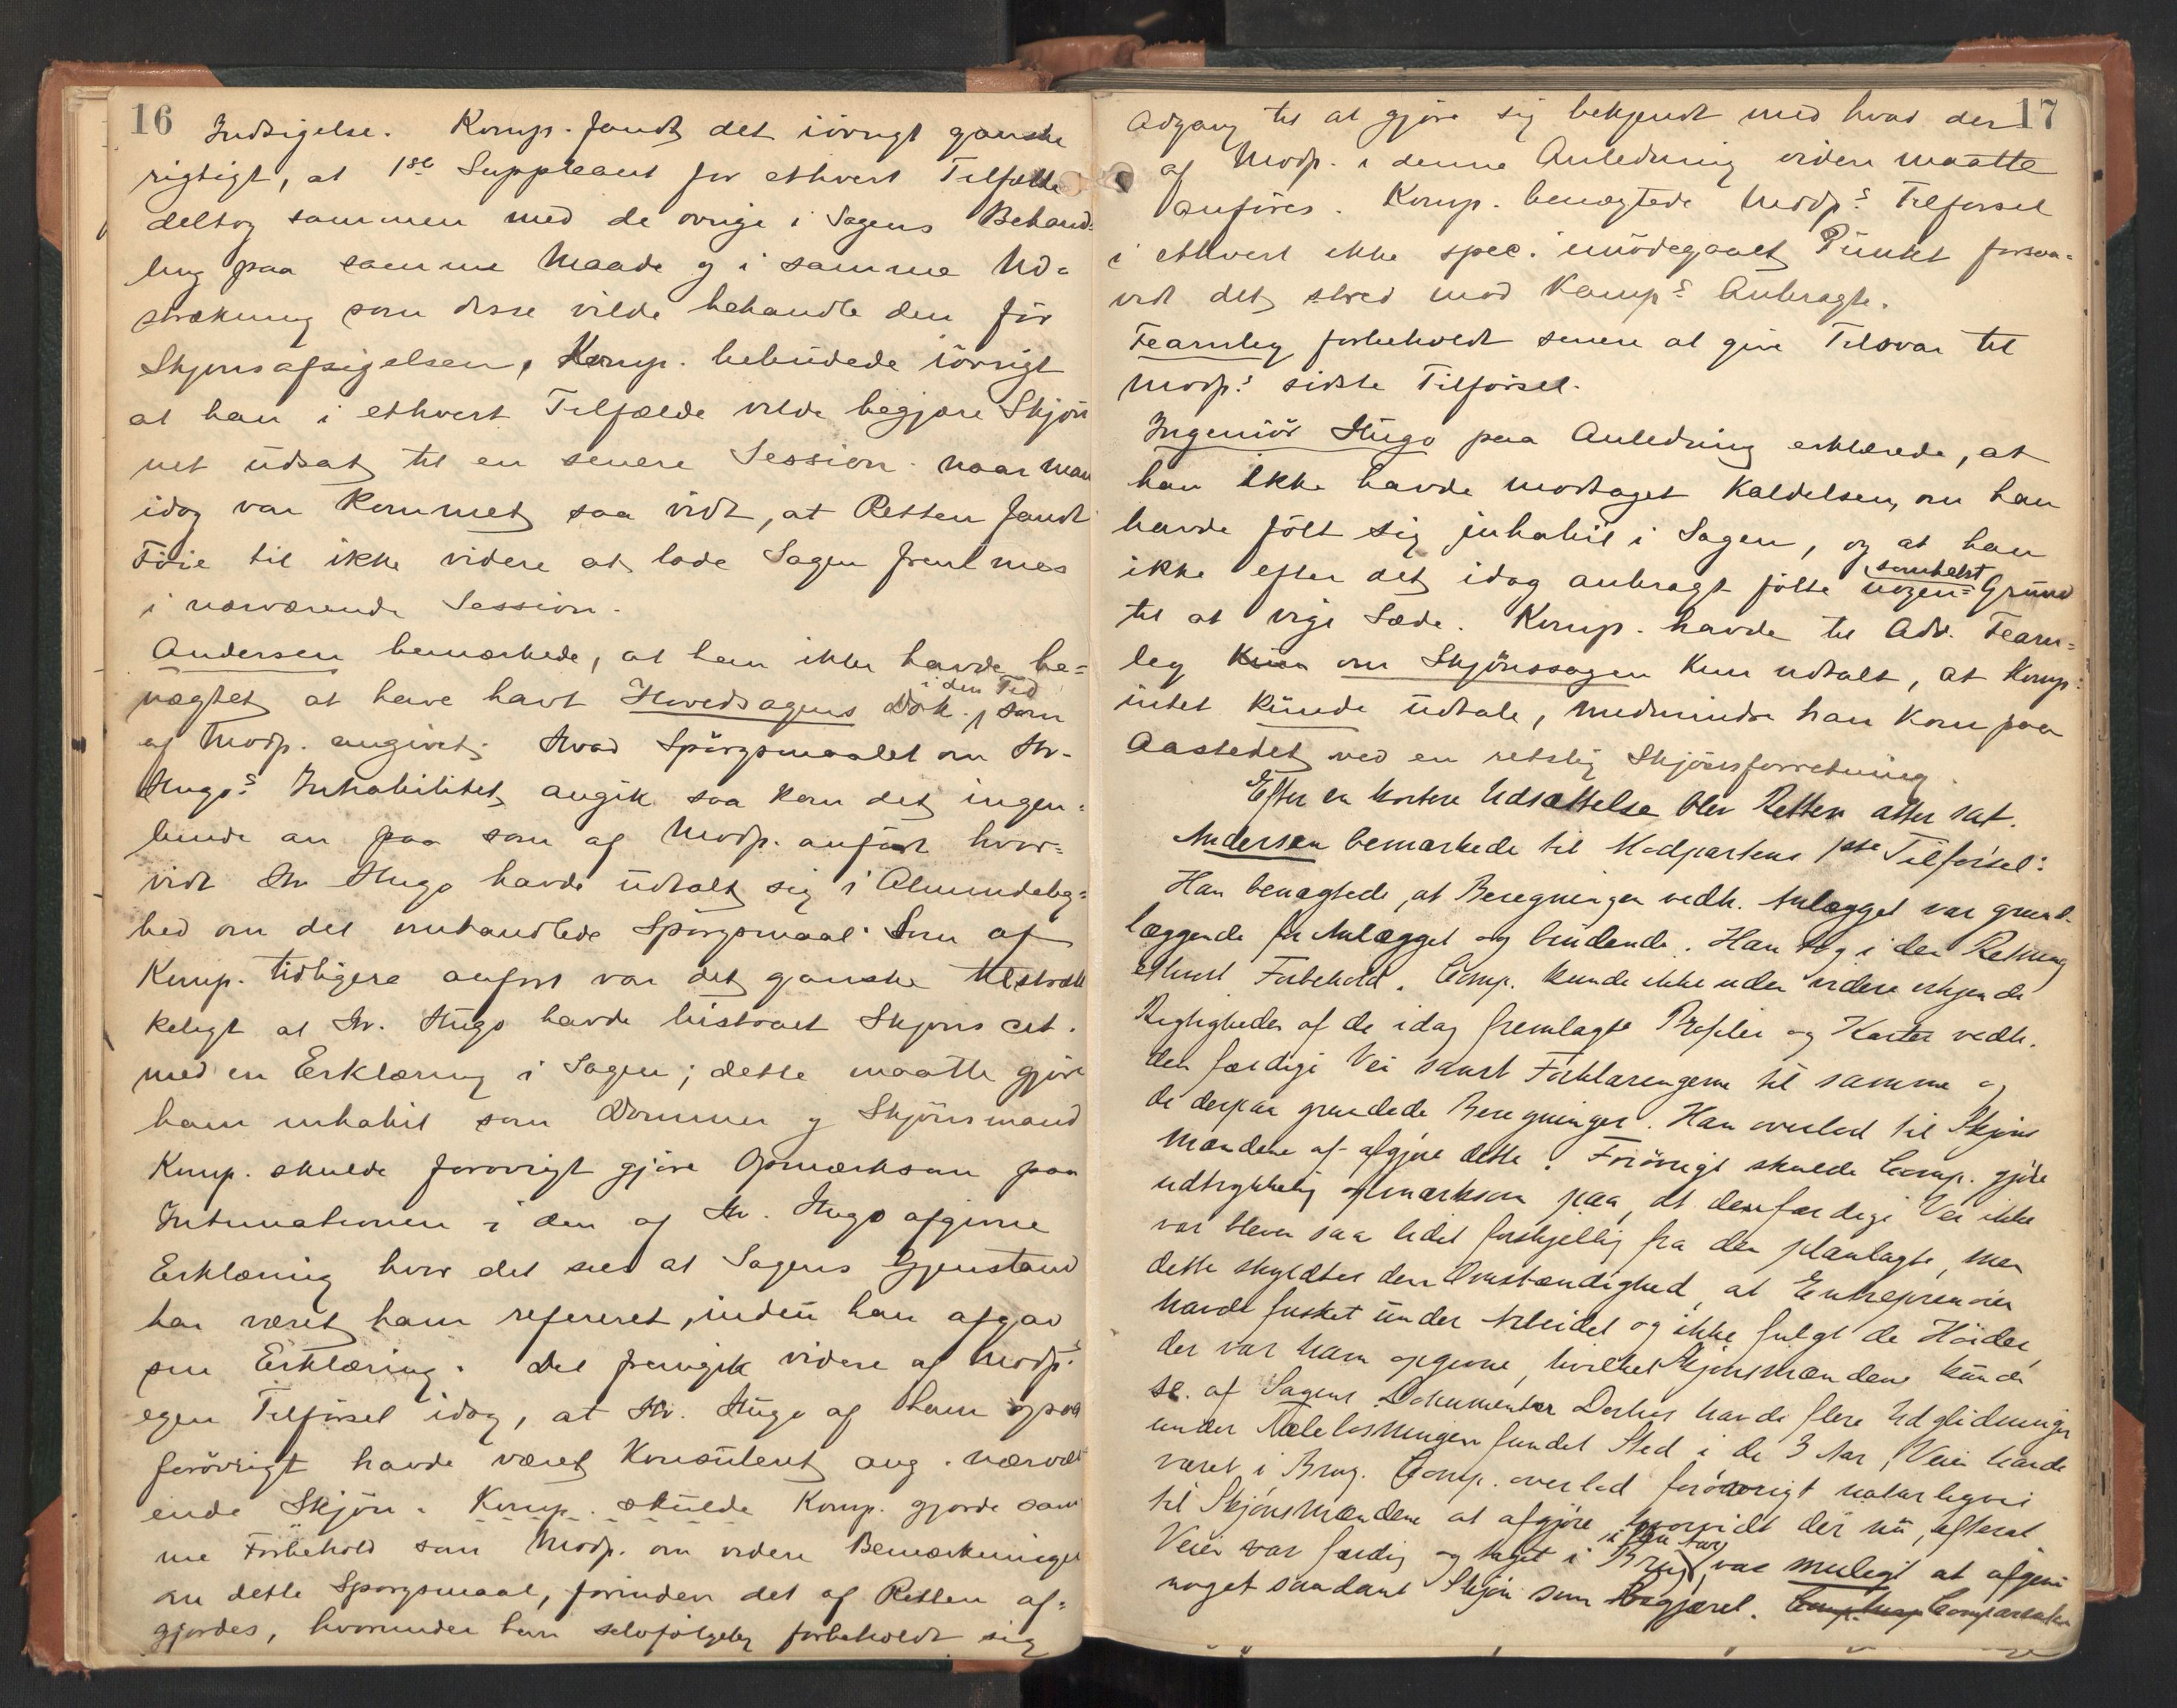 16
Indsigelse. Komp. fandt det iövrigt ganske
rigtigt, at 1ste Suppleant for ethvert Tilfælde
deltog sammen med de øvrige i Sagens Behand-
ling paa samme Maade og i samme Ud-
strækning som disse vilde behandle den för
Skjønsafsigelsen, Komp. bebudede iövrigt
at han i ethvert Tilfælde vilde begjære Skjön
net udsat til en senere Session naar man
idag var kommet saa vidt, at Retten fandt
Föie til ikke videre at lade Sagen fremmes
i nærværende Session.
Andersen bemærkede, at han ikke havde be-
nægtet at have havt Hovedsagens Dok. i den Tid som
af Modp. angivet; Hvad Spörgsmaalet om Hr.
Hugos Inhabilitet angik saa kom det ingen-
lunde an paa som af Modp. anfört hvor-
vidt Hr Hugo havde udtalt sig i Almindelig-
hed om det omhandlede Spörgsmaal. Som af
Komp. tidligere anført var det ganske tilstræk
keligt at Hr. Hugo havde bistaaet Skjøns cit.
med en Erklæring i Sagen; dette maatte gjöre
ham inhabil som Dommer og Skjönsmand
Komp. skulde forøvrigt gjöre Opmærksom paa
Intimationen i den af Hr. Hugo afgivne
Erklæring hvor det sees at Sagens Gjenstand
har været ham refereret, inden han afgav
sin Erklæring. Det fremgik videre af Modp.s
egen Tilførsel idag, at Hr. Hugo af ham ogsaa
forövrigt havde været Konsulent ang. nærvær
ende Skjön. Komp. skulde Komp. gjorde sam
me Forbehold som Modp. om videre Bemærkninger
om dette Spørgsmaal, forinden det af Retten af-
gjordes, hvorunder han selvfølgelig forbeholdt sig
17
Adgang til at gjöre sig bekjendt med hvad der
af Modp. i denne Anledning videre maatte
anföres. Komp. benægtede Modp.s Tilførsel
i ethvert ikke spec. imödegaaet Punkt forsaa-
vidt det stred mod Komp.s Anbragte.
Fearnley forbeholdt senere at give Tilsvar til
Modp.s sidste Tilförsel.
Ingeniör Hugo paa Anledning erklærede, at
han ikke havde modtaget Kaldelsen, om han
havde fölt sig inhabil i Sagen, og at han
ikke efter det idag anbragt fölte nogen-somhelst Grund
til at vige Sæde. Komp. havde til Adv. Fearn-
ley Kun om Skjönssagen kun udtalt, at Komp.
intet kunde udtale, medmindre han kom paa
Aastedet ved en retslig Skjönsforretning.
Efter en kortere Udsættelse blev Retten atter sat.
Andersen bemærkede til Modpartens 1ste Tilførsel:
Han benægtede, at Beregningen vedk. Anlægget var grund-
læggende for Anlægget og bindende. Han tog i den Retning
ethvert Forbehold. Comp. kunde ikke uden videre erkjende
Rigtigheden af de idag fremlagte Profiler og Karter vedk.
den færdige Vei samt Forklaringerne til samme og
de derpaa grundede Beregninger. Han overlod til Skjöns
mændene at afgjöre dette. Forövrigt skulde Comp. gjöre
udtrykkelig opmærksom paa, at den færdige Vei ikke
var bleven saa lidet forskjellig fra den planlagte, men
dette skyldtes den Omstændighed, at Entreprenøren
havde fusket under Arbeidet og ikke fulgt de Höider,
der var ham opgivne, hvilket Skjönsmændene kunde
se af Sagens Dokumenter. Derhos havde flere Udglidninger
under Teleløsningen fundet Sted i de 3 Aar, Veien havde
været i Brug. Comp. overlod forövrigt naturligvis
til Skjönsmændene at afgjöre hvorvidt der nu, efterat
Veien var færdig og taget i Brug i flere Aar, var muligt at afgive
noget saadant Skjön som begjæret. Comp. Comparenten